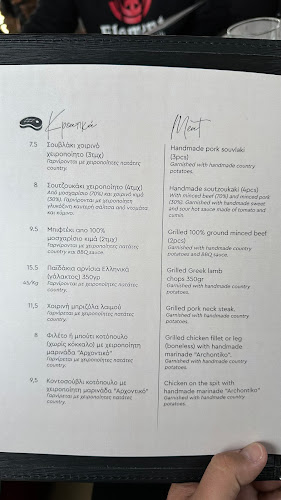 Κρεατικά
7.5 Σουβλάκι χοιρινό
χειροποίητο (3τμχ)
Γαρνίρεται με χειροποίητες πατάτες
country.
8 Σουτζουκάκι χειροποίητο (4τμχ)
Από μοσχαρίσιο (70%) και χοιρινό κιμά
(30%). Γαρνίρεται με χειροποίητη
γλυκόξινη καυτερή σάλτσα από ντομάτα
και κύμινο.
9.5 Μπιφτέκι από 100%
μοσχαρίσιο κιμά (2τμχ)
Γαρνίρεται με χειροποίητες πατάτες
country και BBQ sauce.
15.5 Παϊδάκια αρνίσια Ελληνικά
(γάλακτος) 350γρ
45/Kg Γαρνίρεται με χειροποίητες πατάτες
country.
11,5 Χοιρινή μπριζόλα λαιμού
Γαρνίρεται με χειροποίητες πατάτες
country.
8 Φιλέτο ή μπούτι κοτόπουλο
(χωρίς κόκκαλο) με χειροποίητη
μαρινάδα "Αρχοντικό"
Γαρνίρεται με χειροποίητες πατάτες
country.
9,5 Κοντοσούβλι κοτόπουλο με
χειροποίητη μαρινάδα "Αρχοντικό"
Γαρνίρεται με χειροποίητες πατάτες
country.
Meat
Handmade pork souvlaki
(3pcs)
Garnished with handmade country
potatoes.
Handmade soutzoukaki (4pcs)
With minced beef (70%) and minced pork
(30%). Garnished with handmade sweet
and sour hot sauce made of tomato and
cumin.
Grilled 100% ground minced beef
(2pcs)
Garnished with handmade country
potatoes and BBQ sauce.
Grilled Greek lamb
chops 350gr
Garnished with handmade country
potatoes.
Grilled pork neck steak.
Garnished with handmade country
potatoes.
Grilled chicken fillet or leg
(boneless) with handmade
marinade "Archontiko".
Garnished with handmade country
potatoes.
Chicken on the spit with
handmade marinade "Archontiko"
Garnished with handmade country
potatoes.